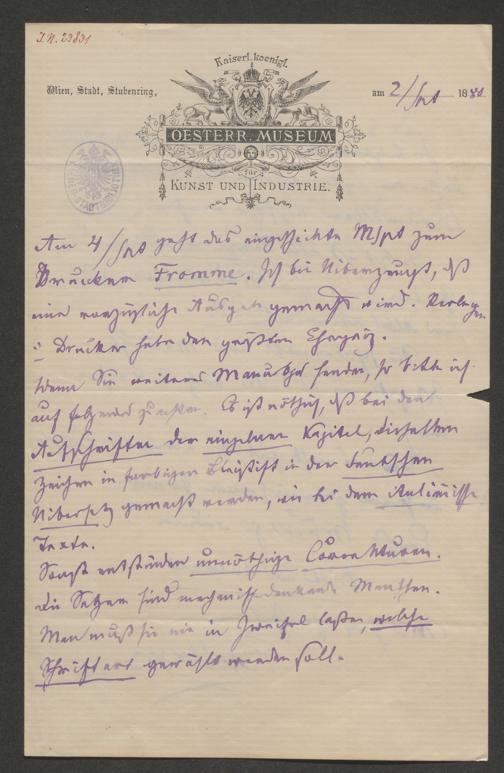 I.N. 23831
Kaiserl. koenigl.
Wien, Stadt, Stubenring,
am 2/ 1880
OESTERR. MUSEUM
für
KUNST UND INDUSTRIE.
Am 4/ geht das eingeschickte Mspt zum
Drucker Fromme. Ich bin überzeugt, daß
eine vorzügliche Ausgabe gemacht wird. Verleger
u. Drucker haben den größten Ehrgeiz.
Wenn Sie weiteres Manuskpt senden, so bitte ich
auf folgendes zu achten. Es ist nöthig, daß bei den
Aufschriften der einzelnen Kapitel, dieselben
Zeichen in farbigem Bleistift in der deutschen
Übersetzg gemacht werden, wie bei dem
Texte.
Sonst entstünden unnöthige Correkturen.
Die Setzer sind mechanisch denkende Menschen.
Man muß sie nie in Zweifel laßen, welche
Schriftart gewählt werden soll.